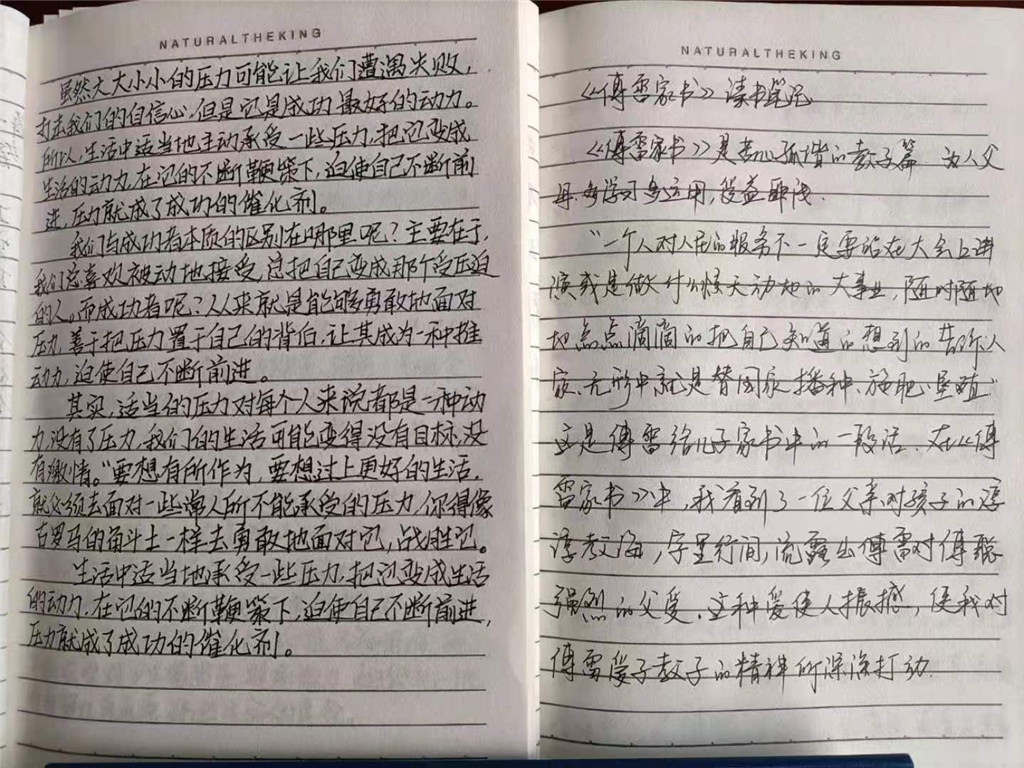 NATURALTHEKING
虽然大大小小的压力可能让我们遭遇失败，
打击我们的自信心，但是它是成功最好的动力。
所以，生活中适当地主动承受一些压力，把它变成
生活的动力，在它的不断鞭策下，迫使自己不断前
进，压力就成了成功的催化剂。
我们与成功者本质的区别在哪里呢？主要在于，
我们总喜欢被动地接受，总把自己变成那个受压迫
的人。而成功者呢？从来就是能够勇敢地面对
压力，善于把压力置于自己的背后，让其成为一种推
动力，迫使自己不断前进。
其实，适当的压力对每个人来说都是一种动
力，没有了压力，我们的生活可能变得没有目标，没
有激情。“要想有所作为，要想过上更好的生活，
就必须去面对一些常人所不能承受的压力，你得像
古罗马的角斗士一样去勇敢地面对它，战胜它。
生活中适当地承受一些压力，把它变成生活
的动力，在它的不断鞭策下，迫使自己不断前进，
压力就成了成功的催化剂。
NATURALTHEKING
《傅雷家书》读书笔记
《傅雷家书》是苦心孤诣的教子篇，为人父
母，多学习多运用，受益匪浅.
“一个人对人民的服务不一定要站在大会上讲
演或是做什么惊天动地的大事业，随时随地
地点点滴滴的把自己知道的想到的告诉人
家，无形中就是替国家播种、施肥、垦殖.
这是傅雷给儿子家书中的一段话. 在《傅
雷家书》中，我看到了一位父亲对孩子的谆
谆教诲，字里行间，流露出傅雷对傅聪
强烈的父爱. 这种爱使人振撼，使我对
傅雷爱子教子的精神所深深打动.